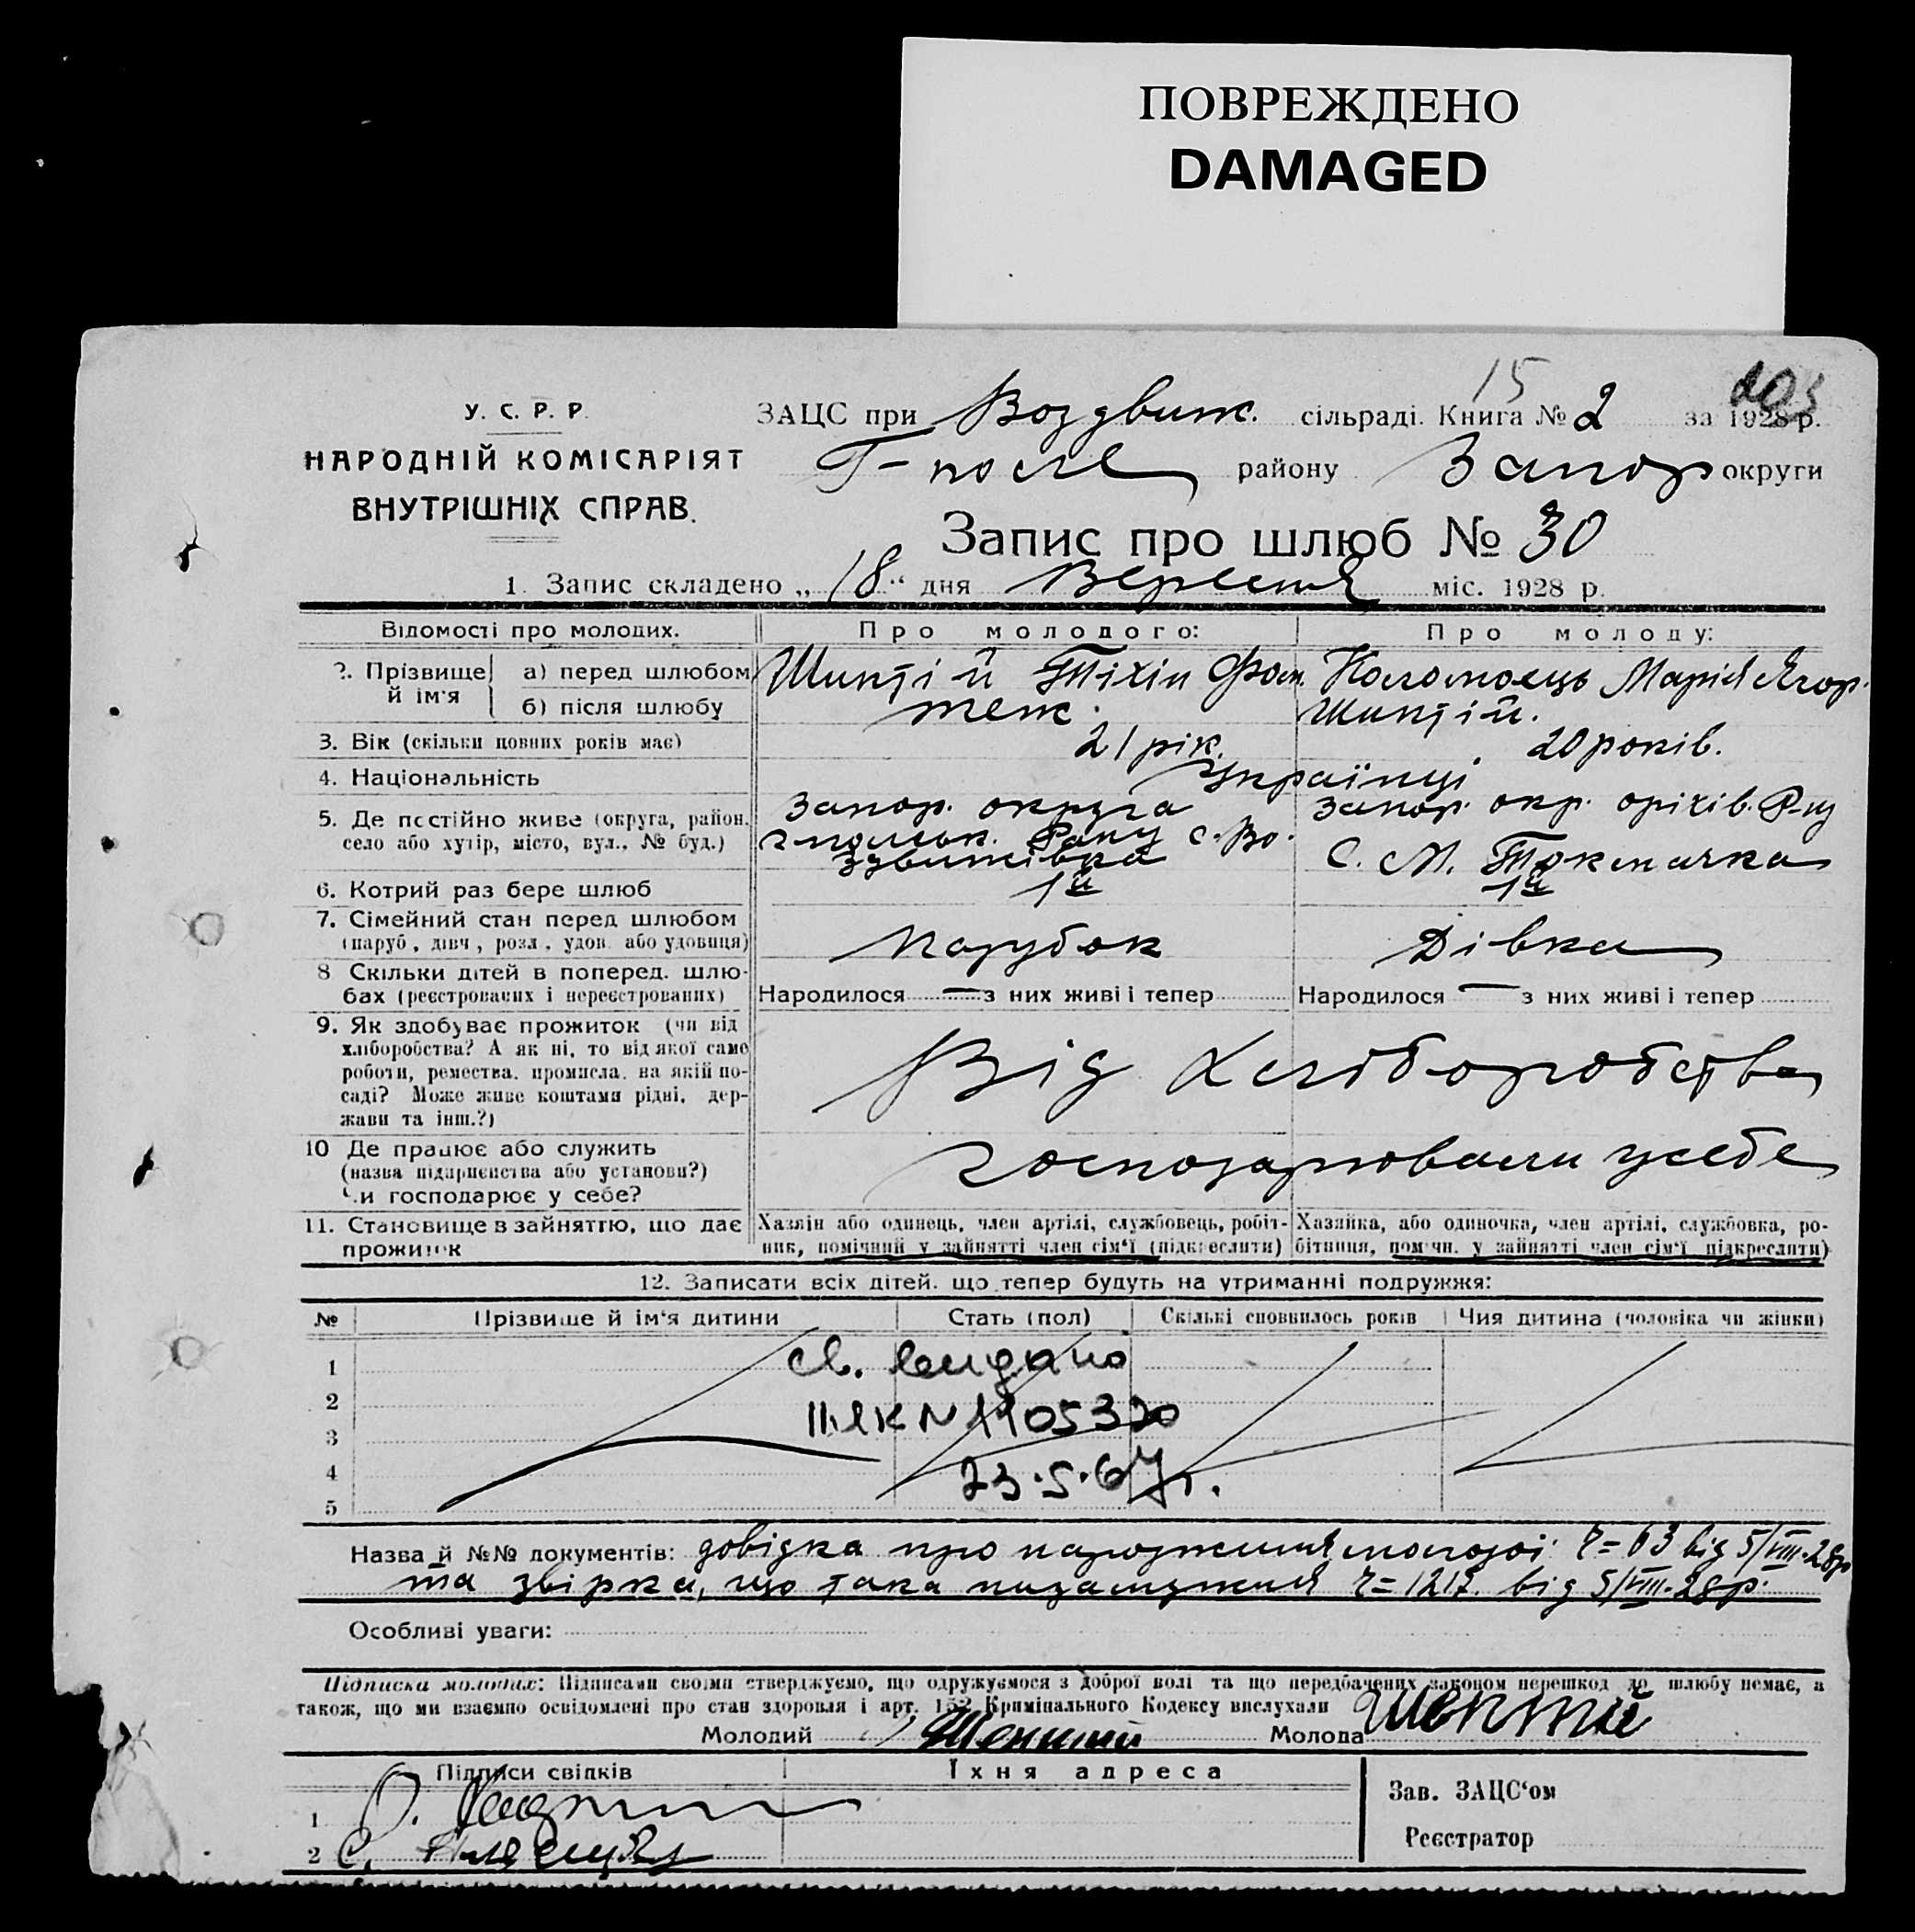 ПОВРЕЖДЕНО
DAMAGED
15
У. С. Р. Р.
НАРОДНІЙ КОМІСАРІЯТ
ВНУТРІШНІХ СПРАВ.
ЗАЦС при Воздвиж. сільраді. Книга № 2 за 1928 р.
Г-поле району Запор округи
Запис про шлюб № 30
1. Запис складено „ 18 “ дня Вересня міс. 1928 р.
Відомості про молодих. Про молодого: Про молоду:
2. Прізвище й ім'я
а) перед шлюбом Тихін Фом. Коломоєць Марія Егор.
б) після шлюбу теж.
3. Вік (скільки повних років має) 21 рік. 20 років.
4. Національність Українці
5. Де постійно живе (округа, район, Запор. округа Запор. окр. оріхів. Р-ну
село або хутір, місто, вул., № буд.) с. Воздвижівка С. М. Токмачка
6. Котрий раз бере шлюб 1й 1й
7. Сімейний стан перед шлюбом
(паруб., дівч., розл., удов. або удовиця) Парубок Дівка
8 Скільки дітей в поперед. шлю-
бах (реєстрованих і нереєстрованих) Народилося — з них живі і тепер Народилося — з них живі і тепер
9. Як здобуває прожиток (чи від
хліборобства? А як ні, то від якої саме
роботи, ремества, промисла, на якій по-
саді? Може живе коштами рідні, дер-
жави та інш.?)
Від Хліборобства
10 Де працює або служить
(назва підприємства або установи?)
Чи господарює у себе?
господарювали усебе
11. Становище в зайняттю, що дає
прожиток
Хазяїн або одинець, член артілі, службовець, робіт-
ник, помічний у зайнятті член сім'ї (підкреслити)
Хазяйка, або одиночка, член артілі, службовка, ро-
бітниця, помічн. у зайнятті член сім'ї підкреслити)
12. Записати всіх дітей, що тепер будуть на утриманні подружжя:
№ Прізвище й ім'я дитини Стать (пол) Скількі сповнилось років Чия дитина (чоловіка чи жінки)
1
2
3
4
5
св. видано
23.5.67г.
Назва й №№ документів: довідка про народження молодої ч= 63 від 5/VIII-28р
та звірка, що така незамужня ч= 1217. від 5/VIII-28р.
Особливі уваги:
Підписка молодих: Підписами своїми стверджуємо, що одружуємося з доброї волі та що передбачених законом перешкод до шлюбу немає, а
також, що ми взаємно освідомлені про стан здоровля і арт. 152 Кримінального Кодексу вислухали
Молодий Молода
Підписи свідків Їхня адреса
1
2
Зав. ЗАЦС'ом
Реєстратор